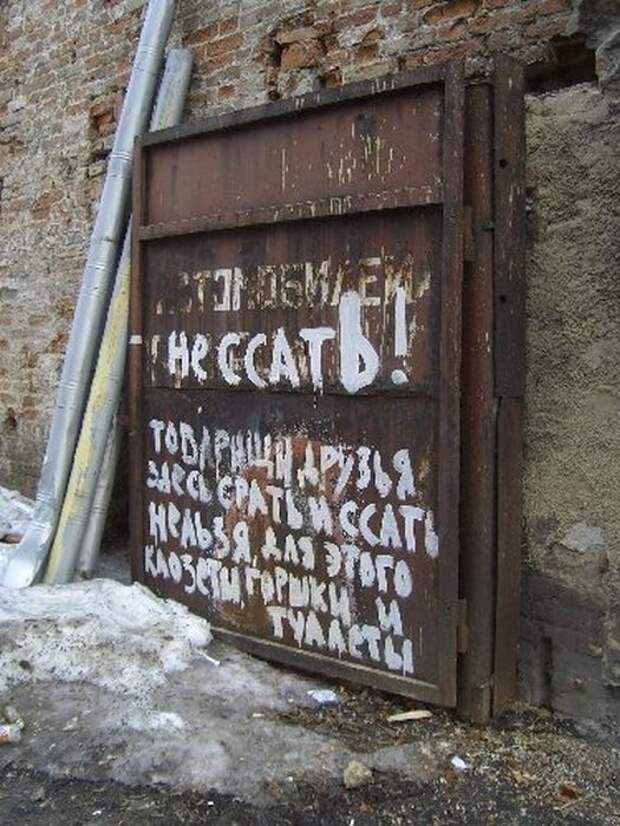 АВТОМОБИЛЕЙ
Не ССАТЬ!
ТОВАРИЩИ ДРУЗЬЯ
ЗДЕСЬ СРАТЬ И ССАТЬ
НЕЛЬЗЯ, ДЛЯ ЭТОГО
КЛОЗЕТЫ, ГОРШКИ И
ТУАЛЕТЫ